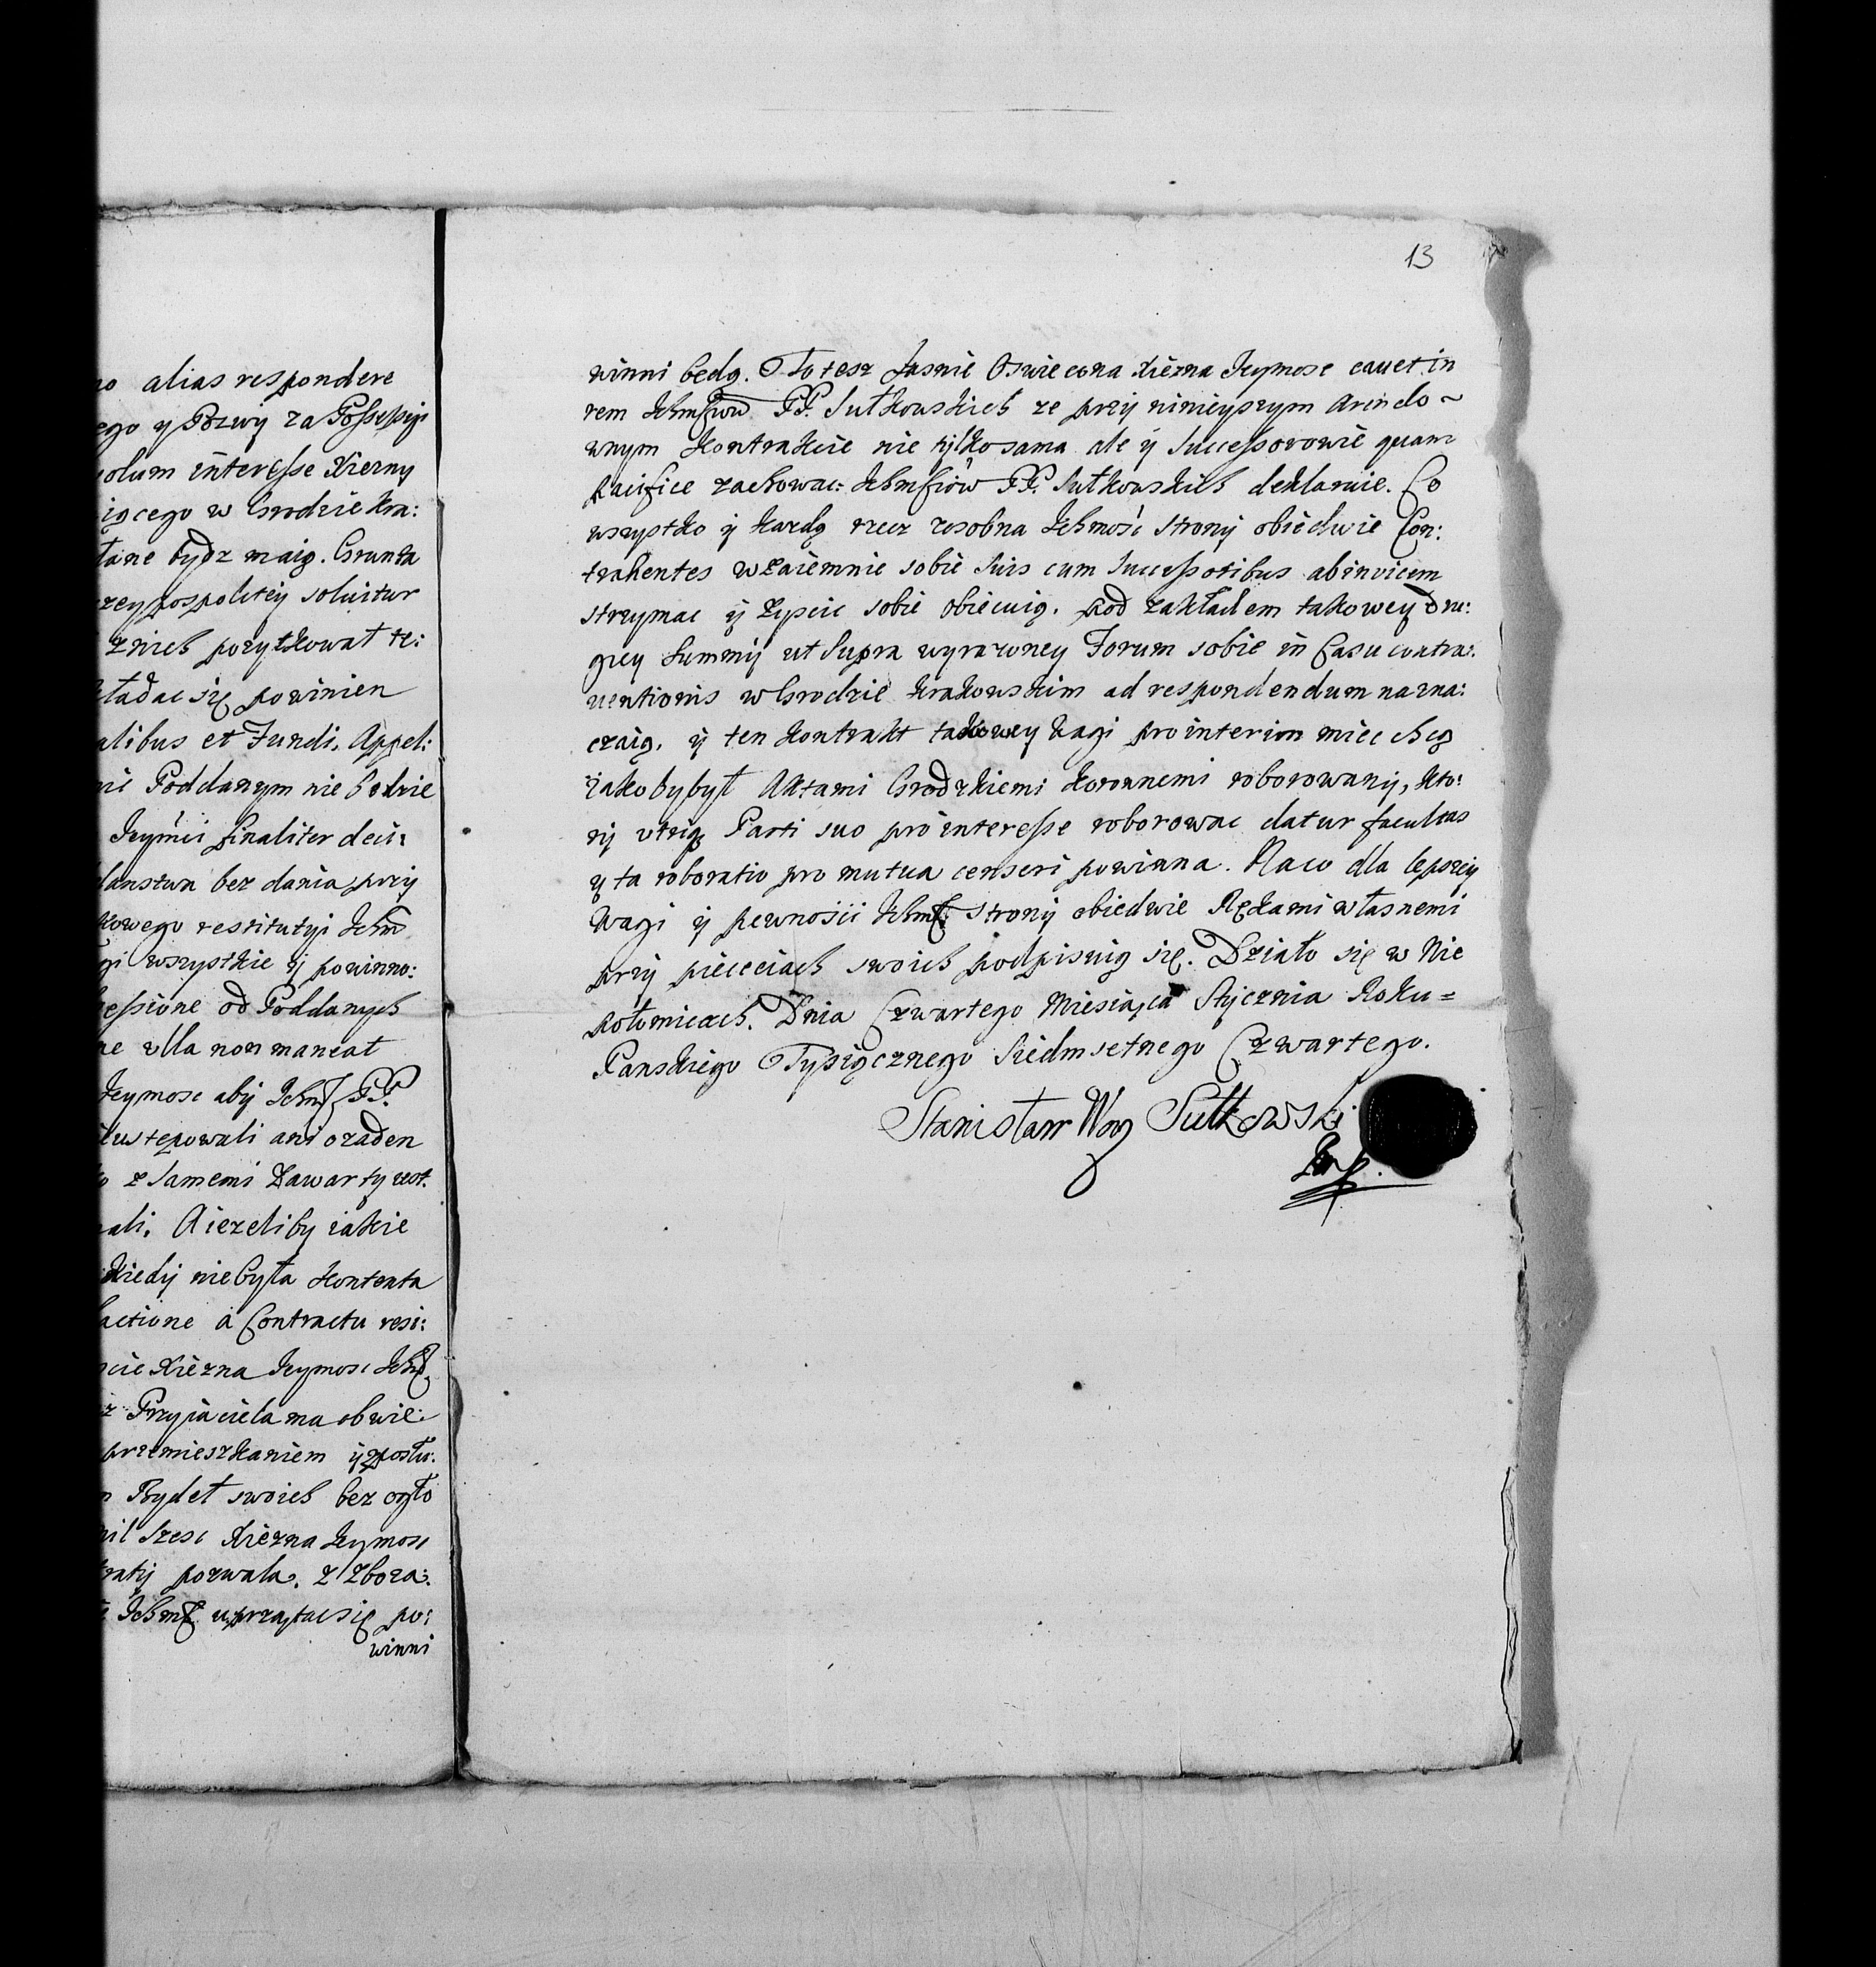 no alias respondere
ego y Pozwy za Possessyi
solum interesse Xiezny
iącego w Grodzie Kra:
łane bydz maią. Grunta
zeypospolitey soluitur
znich pozytkował te:
kładac się powinien
alibus et Fundi. Appel:
nie Poddanym nie bedzie
Jeymci finaliter deci:
danstwa bez dania przy
kowego restitutyi Ichm
gi wszystkie ij powinno:
Sessione od Poddanych
ne vlla non maneat
Jeymosc abij Ichmſ PP.
ustepowali ani ozaden
z Samemi Zawarty
ali. A iezeliby iakie
kiedij niebyła Kontenta
actione à Contractu resi:
Xiezna Jeymosc Ichmſ
z Przyiaciela ma obwie:
przemieszkaniem ij
Bydeł swoich bez
mil Szesc Xiezna Jeymosc
pozwala. z Zboza:
Ichmſ uprzątac się po:
winni
13
winni bedą. To tesz Jasnie Oswiecona Xiezna Jeymosc cauet in
rem Ichmſciow PP. Sułkowskich ze przij ninieyszym Arendo~
wnym Kontrakcie nie tylko sama ale ij Successorowie quam
pacifice zachowac: Ichmſciów PP. Sułkowskich deklaruie. Co
wszystko ij kazdą rzecz zosobna Ichmość strony obiedwie Con:
trahentes wzaiemnie sobie Suis cum Successoribus ab invicem
strzymac ij Zyscic sobie obiecuią. pod zakładem takowey Dru:
giey Summy ut Supra wyrazoney Forum sobie in Casu contra:
uentionis w Grodzie Krakowskim ad respondendum nazna:
czaią. ij ten Kontrakt takowey wagi pro interim miec chcą
iakoby był Aktami Grodzkiemi Koronnemi roborowany, Kto:
rij vtriq Parti suo pro interesse roborowac datur facultas
y ta roboratio pro mutua censeri powinna. Naco dla lepszey
Wagi ij pewności Ichmſ. strony obiedwie Rękami własnemi
przij piececiach swoich podpisuią się. Działo się w Nie
połomicach. Dnia Czwartego Miesiąca Stycznia Roku=
Panskiego Tysiącznego Siedmsetnego Czwartego.
Stanisław Sułkowski